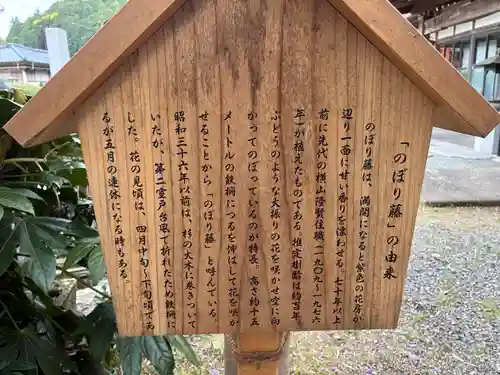 「のぼり藤」の由来
のぼり藤は、満開になると紫色の花房が
辺り一面に甘い香りを漂わせる。七十年以上
前に先代の横山隆賢住職(一九〇九~一九七六
年)が植えたものである。推定樹齢は約百年
ぶどうのような大振りの花を咲かせ空に向
かってのぼっているのが特長。高さ約十五
メートルの鉄柵につるを伸ばして花を咲か
せることから「のぼり藤」と呼んでいる。
昭和三十六年以前は、杉の大木に巻きついて
いたが、第二室戸台風で折れたため鉄柵に
した。花の見頃は、四月中旬~下旬頃であ
るが五月の連休になる時もある。